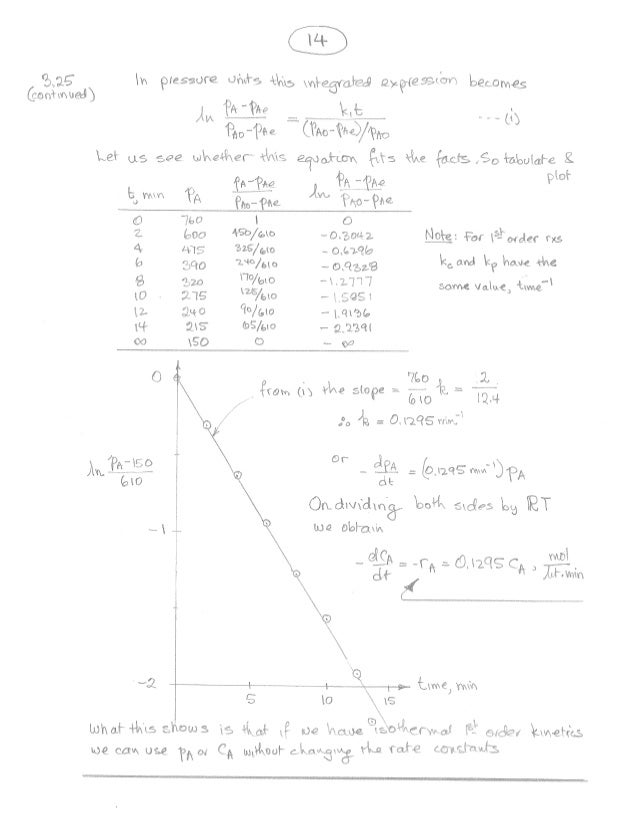 14
3.25 In pressure units this integrated expression becomes
(continued)
ln (pA - pAe)/(pA0 - pAe) = k1t/((pA0 - pAe)/pA0) ---(i)
Let us see whether this equation fits the facts. So tabulate &
plot
t, min pA (pA - pAe)/(pA0 - pAe) ln (pA - pAe)/(pA0 - pAe)
0 760 1 0
2 600 450/610 -0.3042
4 475 325/610 -0.6296
6 390 240/610 -0.9328
8 320 170/610 -1.2777
10 275 125/610 -1.5851
12 240 90/610 -1.9136
14 215 65/610 -2.2391
∞ 150 0 -∞
Note: For 1st order rxs
kc and kp have the
same value, time⁻¹
0
from (i) the slope = 760/610 k = 2/12.4
∴ k = 0.1295 min⁻¹
ln (pA - 150)/610
or - dpA/dt = (0.1295 min⁻¹) pA
On dividing both sides by RT
we obtain
-1
- dCA/dt = -rA = 0.1295 CA, mol/lit.min
-2
time, min
5 10 15
What this shows is that if we have isothermal 1st order kinetics
we can use pA or CA without changing the rate constants